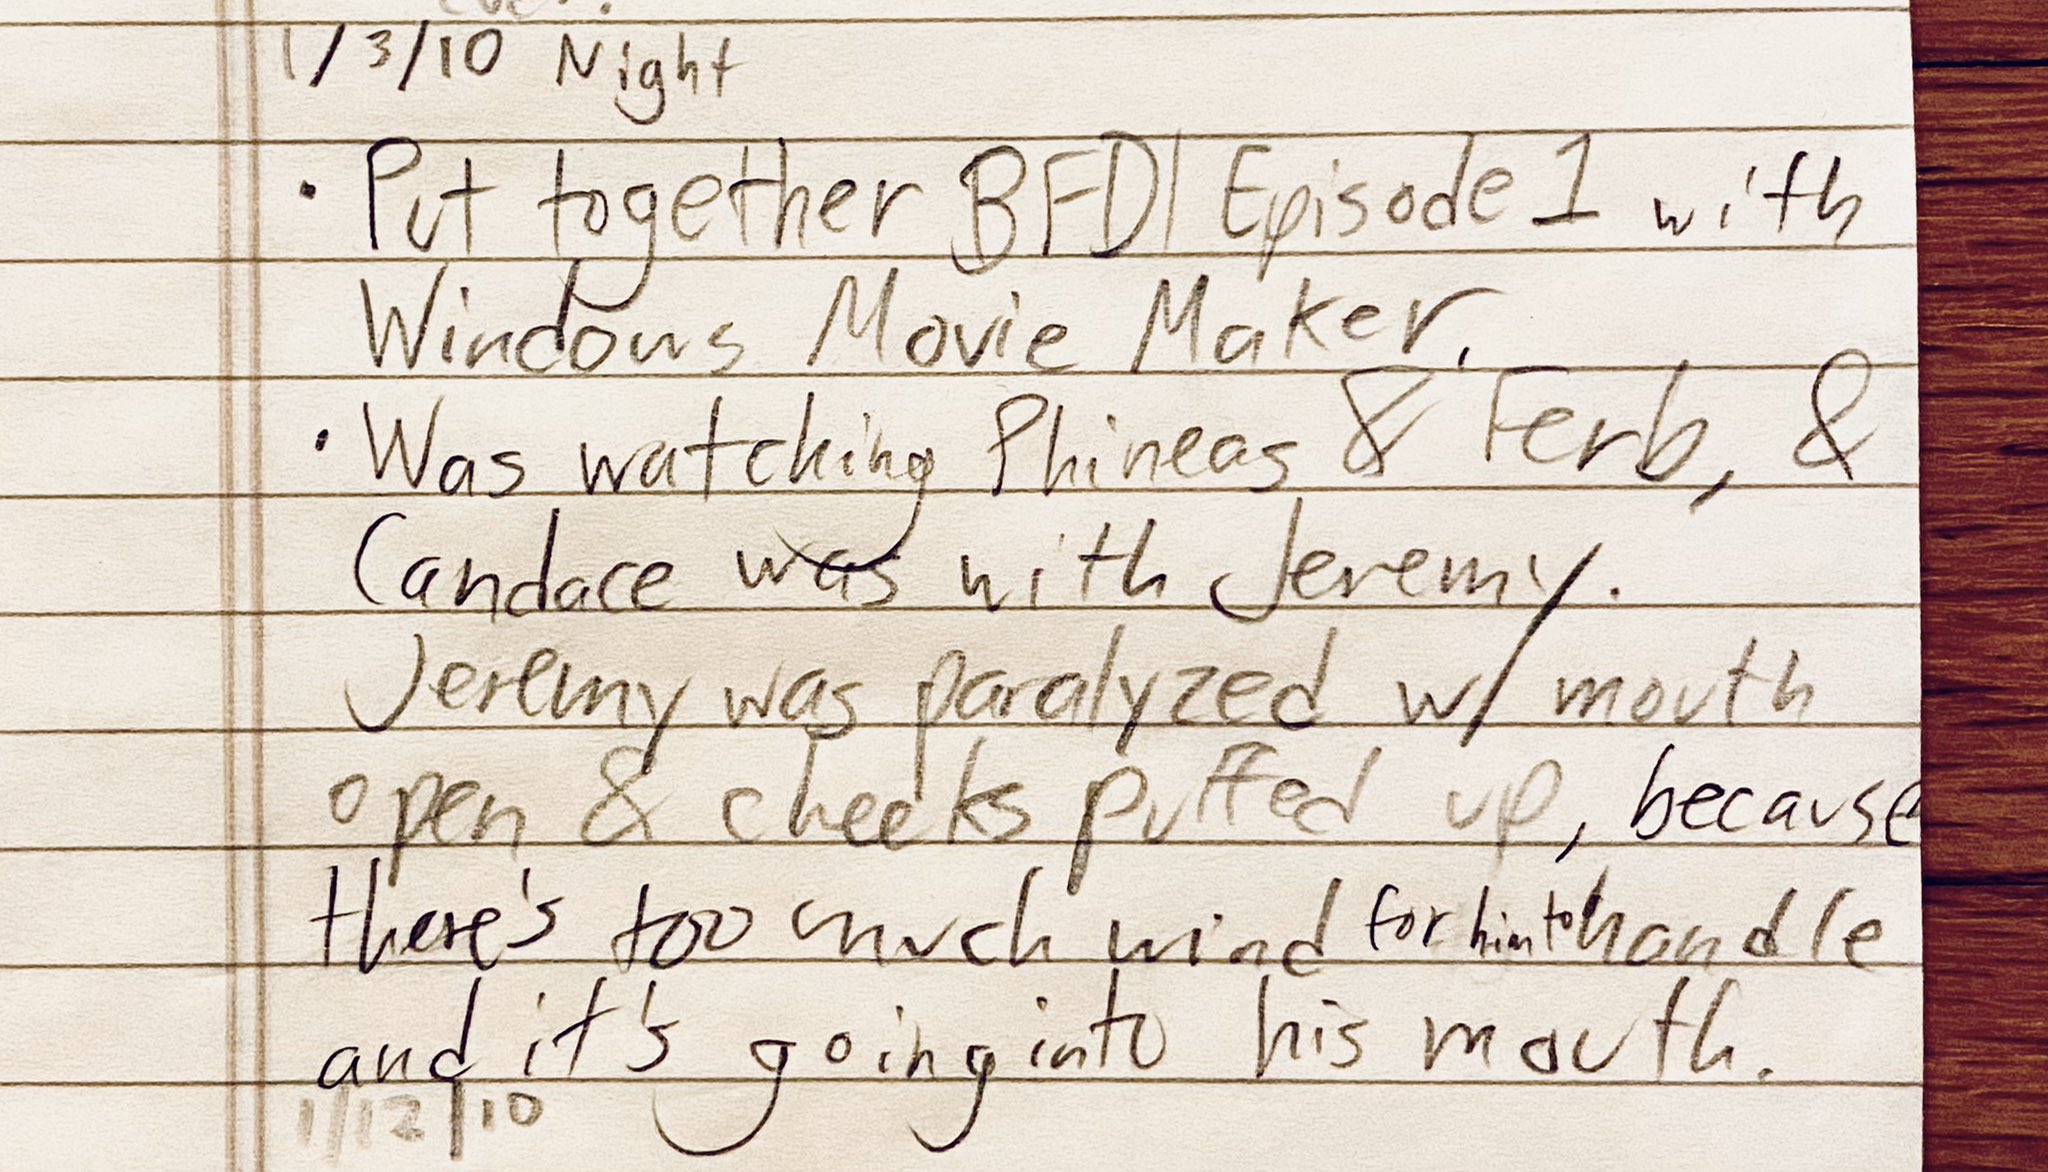 ever.
1/3/10 Night
• Put together BFDI Episode 1 with
Windows Movie Maker.
• Was watching Phineas & Ferb, &
Candace was with Jeremy.
Jeremy was paralyzed w/ mouth
open & cheeks puffed up, because
there's too much wind for him to handle
and it's going into his mouth.
1/12/10